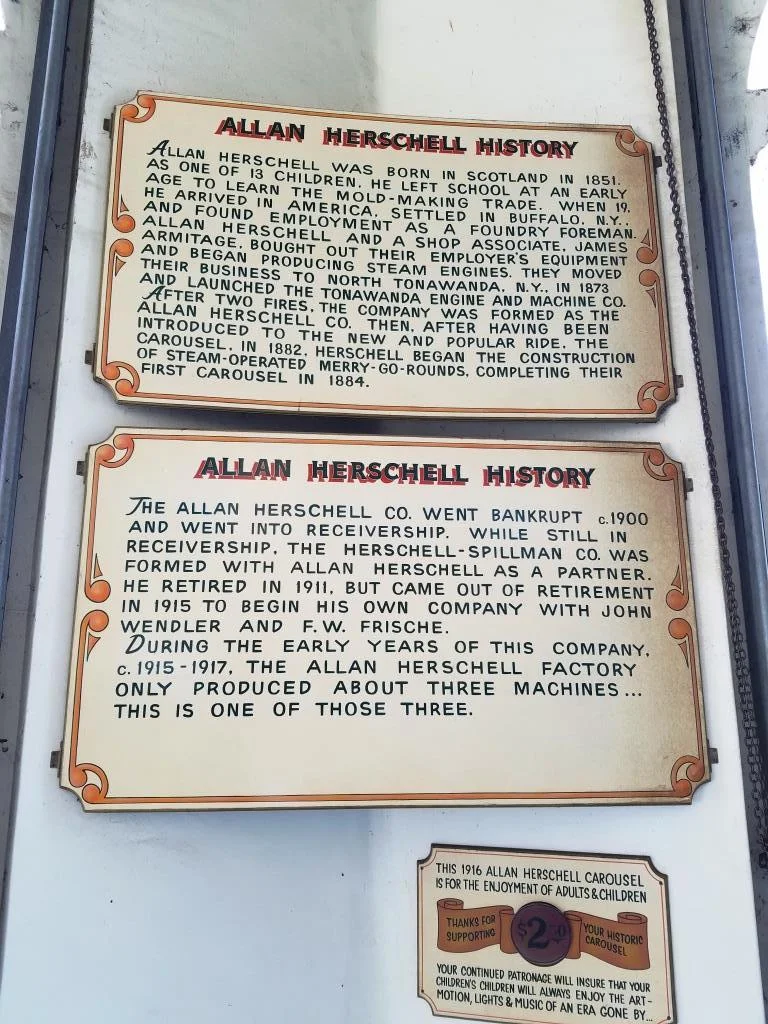 ALLAN HERSCHELL HISTORY
ALLAN HERSCHELL WAS BORN IN SCOTLAND IN 1851.
AS ONE OF 13 CHILDREN, HE LEFT SCHOOL AT AN EARLY
AGE TO LEARN THE MOLD-MAKING TRADE. WHEN 19,
HE ARRIVED IN AMERICA, SETTLED IN BUFFALO, N.Y.,
AND FOUND EMPLOYMENT AS A FOUNDRY FOREMAN.
ALLAN HERSCHELL AND A SHOP ASSOCIATE, JAMES
ARMITAGE, BOUGHT OUT THEIR EMPLOYER'S EQUIPMENT
AND BEGAN PRODUCING STEAM ENGINES. THEY MOVED
THEIR BUSINESS TO NORTH TONAWANDA, N.Y., IN 1873
AND LAUNCHED THE TONAWANDA ENGINE AND MACHINE CO.
AFTER TWO FIRES, THE COMPANY WAS FORMED AS THE
ALLAN HERSCHELL CO. THEN, AFTER HAVING BEEN
INTRODUCED TO THE NEW AND POPULAR RIDE, THE
CAROUSEL, IN 1882, HERSCHELL BEGAN THE CONSTRUCTION
OF STEAM-OPERATED MERRY-GO-ROUNDS, COMPLETING THEIR
FIRST CAROUSEL IN 1884.
ALLAN HERSCHELL HISTORY
THE ALLAN HERSCHELL CO. WENT BANKRUPT c.1900
AND WENT INTO RECEIVERSHIP. WHILE STILL IN
RECEIVERSHIP, THE HERSCHELL-SPILLMAN CO. WAS
FORMED WITH ALLAN HERSCHELL AS A PARTNER.
HE RETIRED IN 1911, BUT CAME OUT OF RETIREMENT
IN 1915 TO BEGIN HIS OWN COMPANY WITH JOHN
WENDLER AND F.W. FRISCHE.
DURING THE EARLY YEARS OF THIS COMPANY,
c.1915-1917, THE ALLAN HERSCHELL FACTORY
ONLY PRODUCED ABOUT THREE MACHINES...
THIS IS ONE OF THOSE THREE.
THIS 1916 ALLAN HERSCHELL CAROUSEL
IS FOR THE ENJOYMENT OF ADULTS & CHILDREN
THANKS FOR
SUPPORTING
$2.50
YOUR HISTORIC
CAROUSEL
YOUR CONTINUED PATRONAGE WILL INSURE THAT YOUR
CHILDREN'S CHILDREN WILL ALWAYS ENJOY THE ART-
MOTION, LIGHTS & MUSIC OF AN ERA GONE BY...